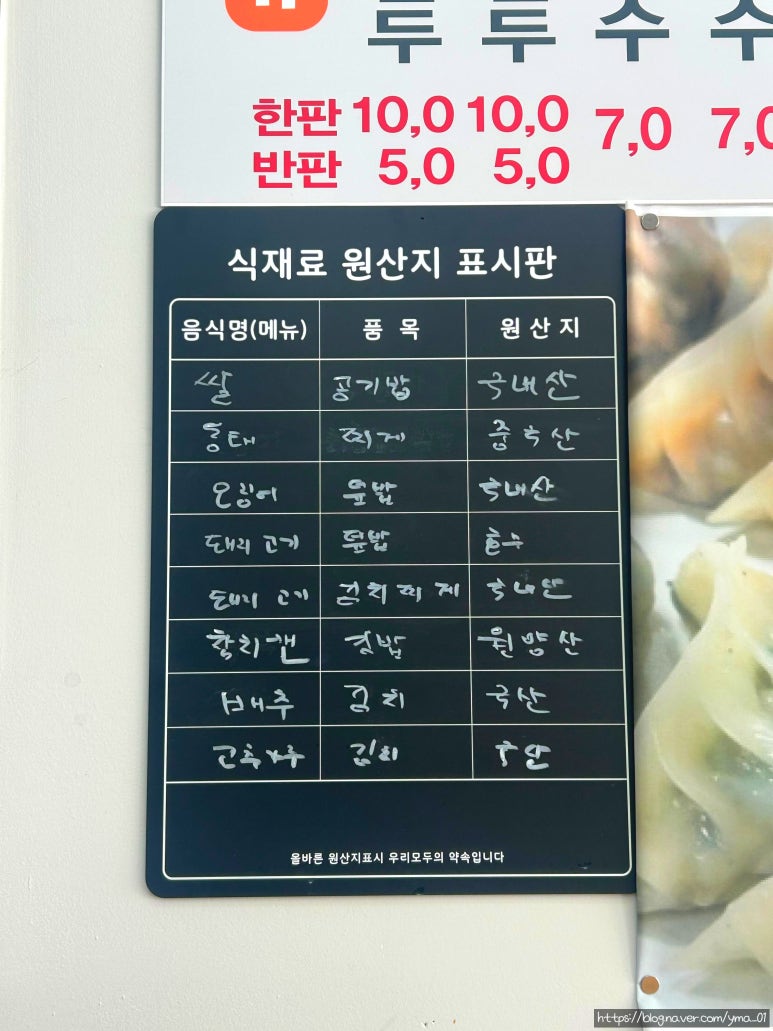 한판 10,0 10,0 7,0 7,0
반판 5,0 5,0
식재료 원산지 표시판
음식명(메뉴) 품 목 원 산 지
쌀 공기밥 국내산
동태 찌게 중국산
오징어 덮밥 국내산
돼지고기 덮밥 호주
돼지고기 김치찌게 국내산
참치캔 김밥 원양산
배추 김치 국산
고추가루 김치 국산
올바른 원산지표시 우리모두의 약속입니다
https://blog.naver.com/yma_01